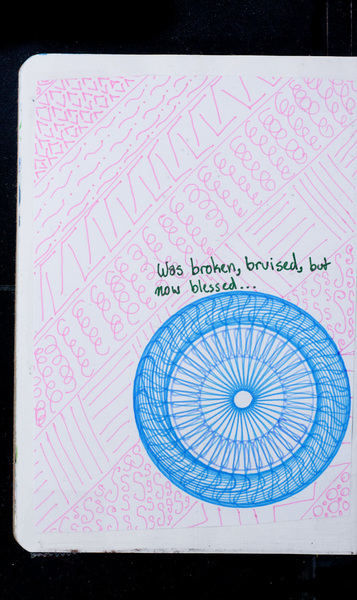 Was broken, bruised, but
now blessed...